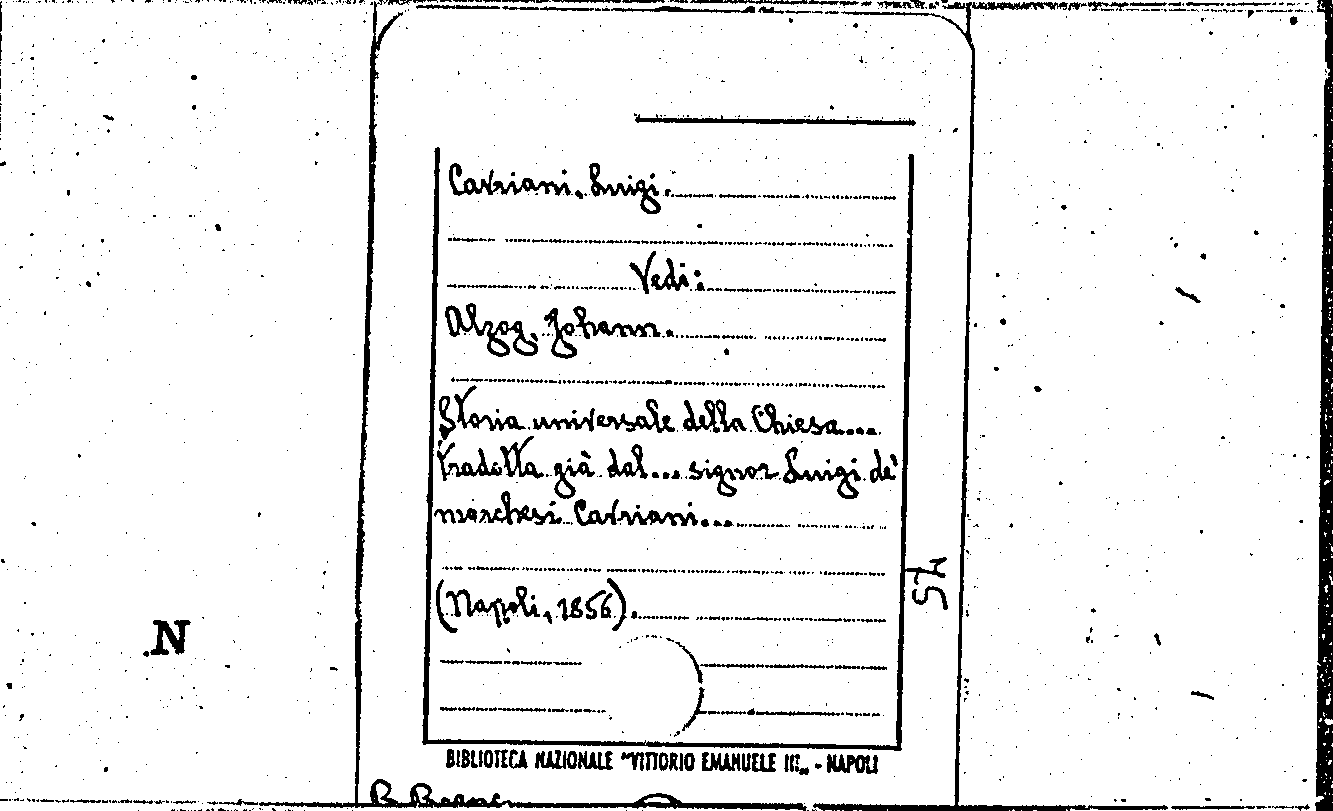 Cavriani, Luigi.
Vedi:
Alzog, Johann.
Storia universale della Chiesa...
tradotta già dal... signor Luigi de'
marchesi Cavriani...
(Napoli, 1856).
57
N
BIBLIOTECA NAZIONALE "VITTORIO EMANUELE III„ - NAPOLI